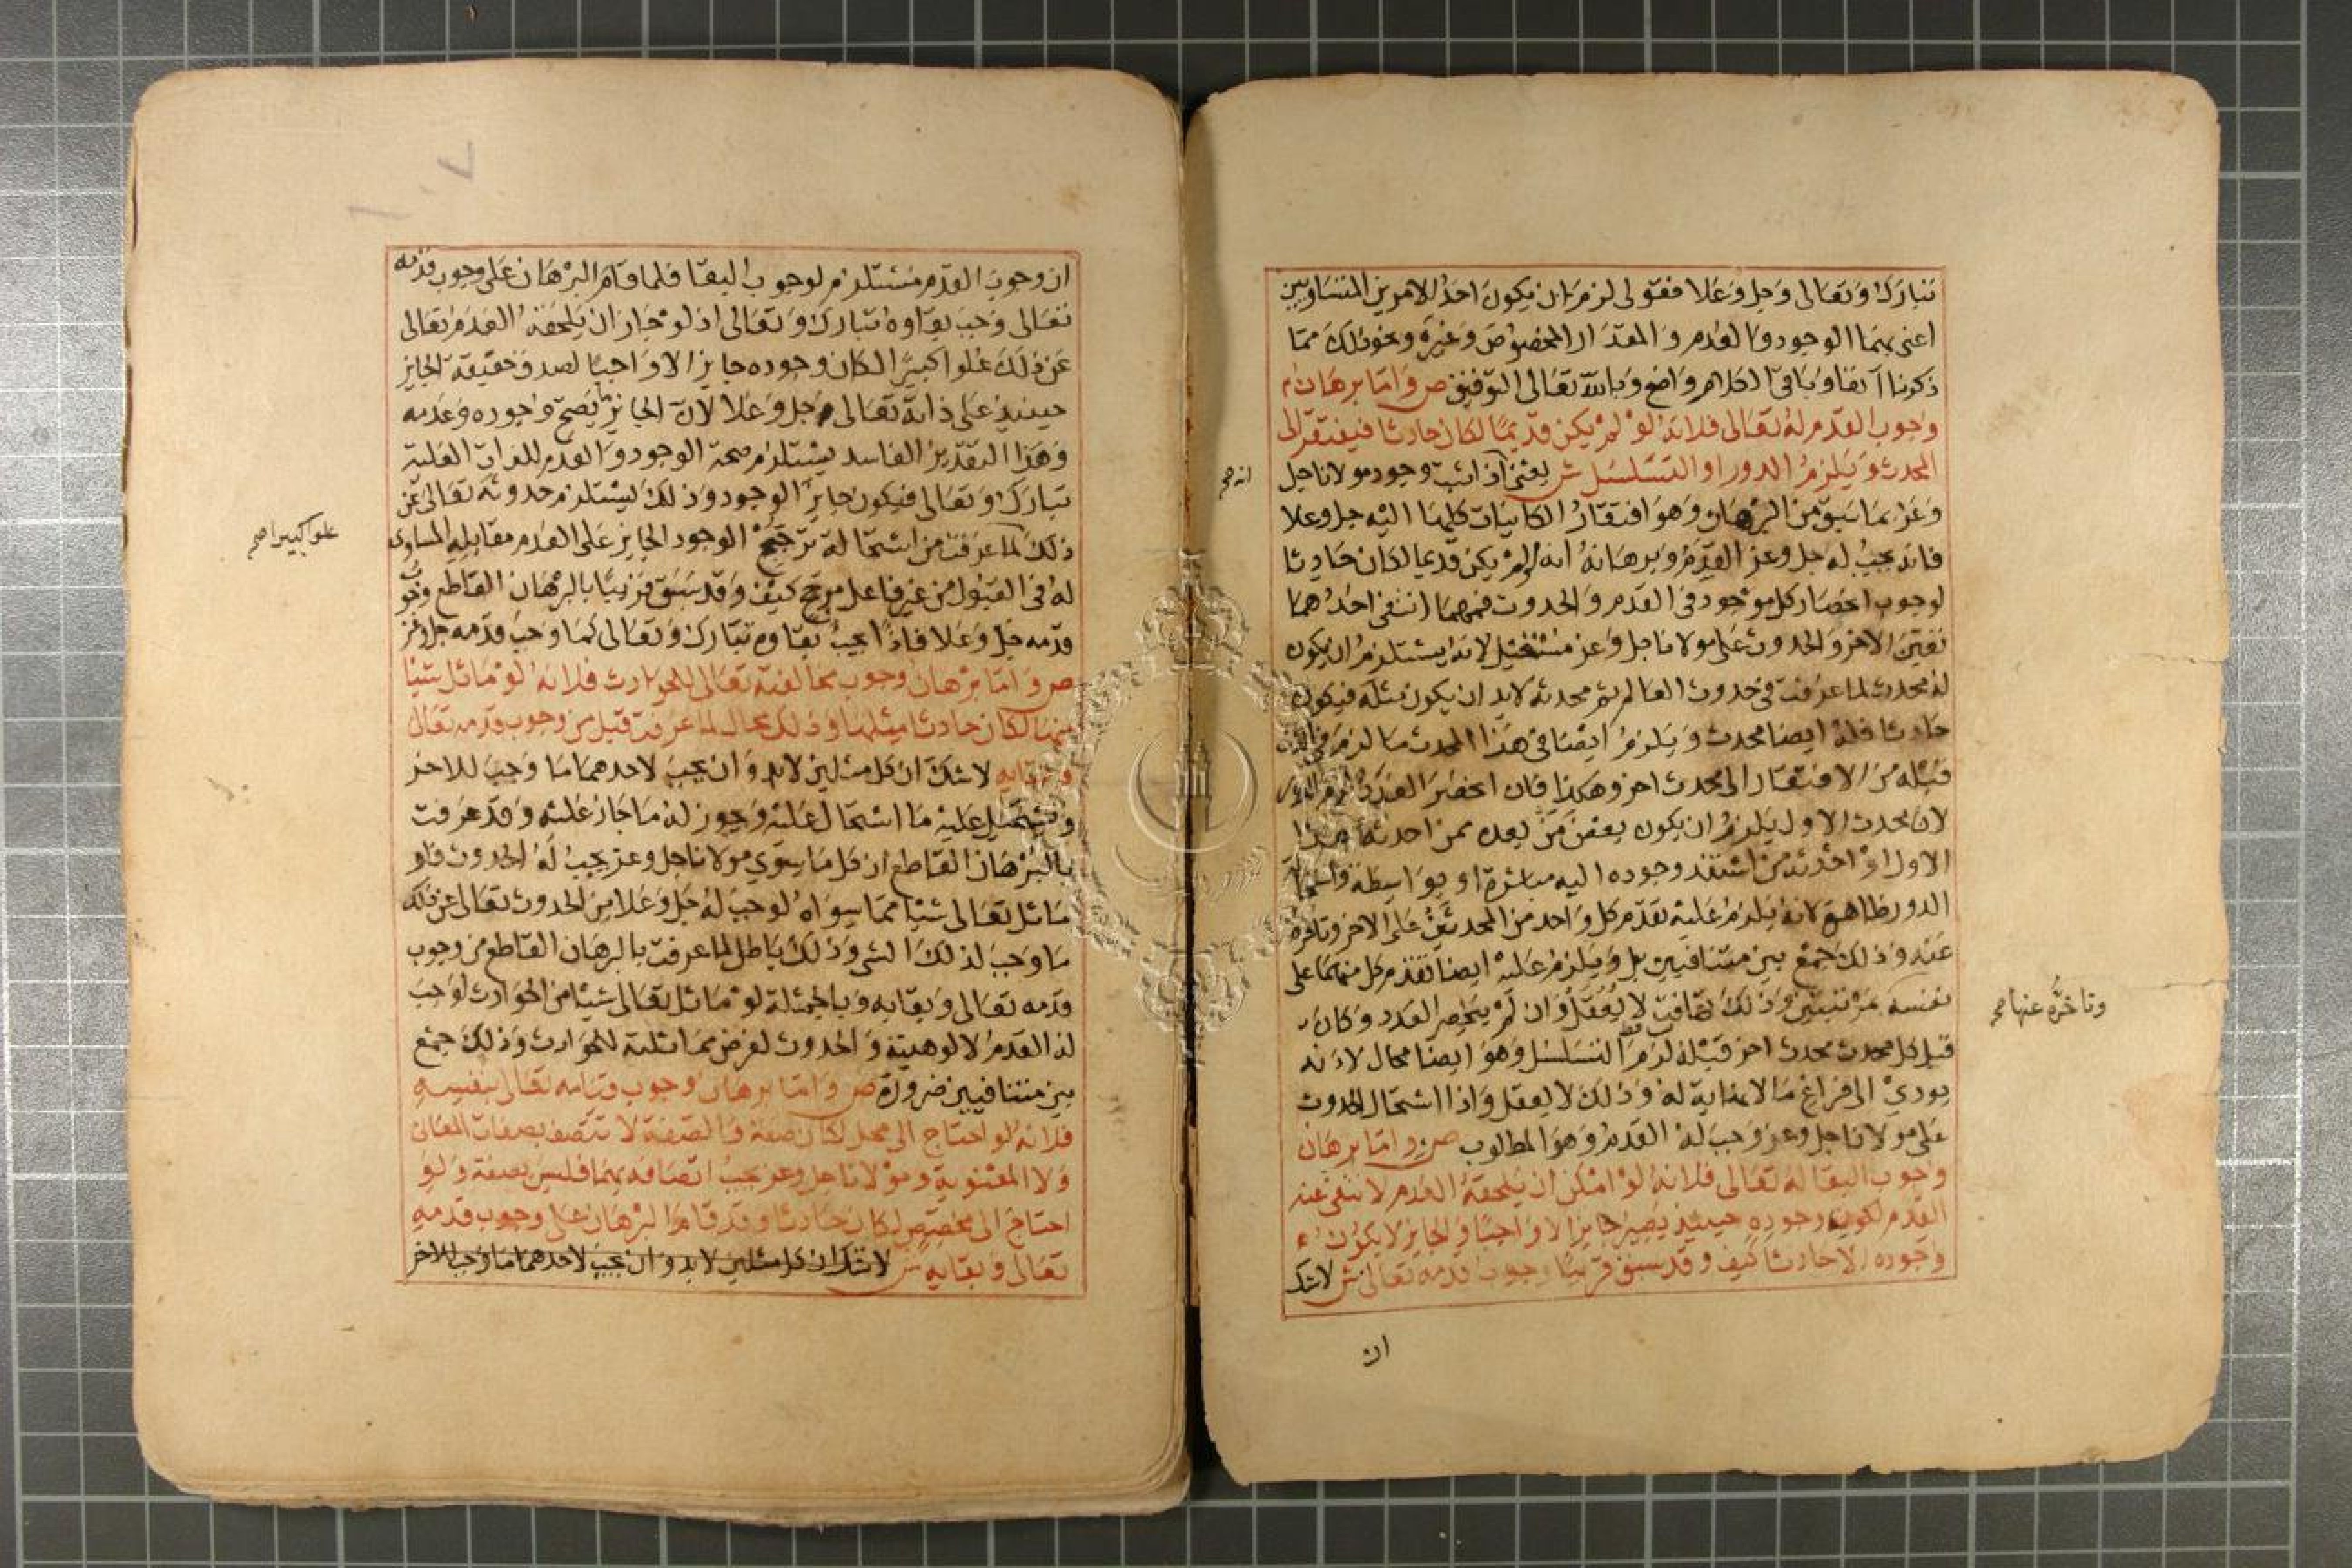 تبارك وتعالى وجل وعلا فقولى لزم ان يكون احد الامرين المتساويين
اعنى بهما الوجود والعدم والمقدار المخصوص وغيره ونحو ذلك مما
ذكرنا آنفا وباقى الكلام واضح وبالله تعالى التوفيق ص واما برهان
وجوب القدم له تعالى فلانه لو لم يكن قديما لكان حادثا فيفتقر الى
المحدث ويلزم الدور او التسلسل ش يعنى اذا ثبت وجود مولانا جل
انه صح
وعز بما سبق من البرهان وهو افتقار الكاينات كلها اليه جل وعلا
فانه يجب له جل وعز القدم وبرهانه انه لو لم يكن قديما لكان حادثا
لوجوب انحصار كل موجود فى القدم والحدوث فمهما انتفى احدهما
تعين الاخر والحدوث على مولانا جل وعز مستحيل لانه يستلزم ان يكون
له محدث لما عرفت فى حدوث العالم ثم محدثه لابد ان يكون مثله فيكون
حادثا فله ايضا محدث ويلزم ايضا فى هذا المحدث ما لزم فى الذى
قبله من الافتقار الى محدث اخر وهكذا فان انحصر العدد لزم الدور
لان محدث الاول يلزم ان يكون بعض من بعده ممن احدثه هذا
الاول او احدثه من استند وجوده اليه مباشرة او بواسطة واستحالة
الدور ظاهرة لانه يلزم عليه تقدم كل واحد من المحدثين على الاخر وتاخره
عنه وذلك جمع بين متنافيين بل ويلزم عليه ايضا تقدم كل منهما على
نفسه بمرتبتين وذلك تهافت لا يعقل وان لم ينحصر العدد وكان
وتاخره عنها صح
قبل كل محدث محدث اخر قبله لزم التسلسل وهو ايضا محال لانه
يودى الى فراغ ما لا نهاية له وذلك لا يعقل واذا استحال الحدوث
على مولانا جل وعز وجب له القدم وهو المطلوب ص واما برهان
وجوب البقا له تعالى فلانه لو امكن ان يلحقه العدم لانتفى عنه
القدم لكون وجوده حينيذ يصير جايزا لا واجبا والجايز لا يكون
وجوده الا حادثا كيف وقد سبق قريبا وجوب قدمه تعالى ش لا شك
ان
ان وجوب القدم مستلزم لوجوب البقا فلما قام البرهان على وجوب قدمه
تعالى وجب بقاوه تبارك وتعالى اذ لو جاز ان يلحقه العدم تعالى
عن ذلك علوا كبيرا لكان وجوده جايزا لا واجبا لصدق حقيقة الجايز
حينيذ على ذاته تعالى جل وعلا لان الجايز ما يصح وجوده وعدمه
وهذا التقدير الفاسد يستلزم صحة الوجود والعدم للذات العلية
تبارك وتعالى فيكون جايز الوجود وذلك يستلزم حدوثه تعالى عن
ذلك لما عرفت من استحالة ترجيح الوجود الجايز على العدم مقابله المساوى
علوا كبيرا صح
له فى القبول من غير فاعل مرجح كيف وقد سبق قريبا بالبرهان القاطع وجوب
قدمه جل وعلا فاذا يجب بقاوه تبارك وتعالى كما وجب قدمه جل وعز
ص واما برهان وجوب مخالفته تعالى للحوادث فلانه لو ماثل شيئا
منها لكان حادثا مثلها وذلك محال لما عرفت قبل من وجوب قدمه تعالى
وبقايه لا شك ان كل مثلين لابد وان يجب لاحدهما ما وجب للاخر
ويستحيل عليه ما استحال عليه ويجوز له ما جاز عليه وقد عرفت
بالبرهان القاطع ان كل ما سوى مولانا جل وعز يجب له الحدوث فلو
ماثل تعالى شيئا مما سواه لوجب له جل وعلا من الحدوث تعالى عن ذلك
ما وجب لذلك الشى وذلك باطل لما عرفت بالبرهان القاطع من وجوب
قدمه تعالى وبقايه وبالجملة لو ماثل تعالى شيئا من الحوادث لوجب
له القدم لالوهيته والحدوث لفرض مماثلته للحوادث وذلك جمع
بين متنافيين ضرورة ص واما برهان وجوب قيامه تعالى بنفسه
فلانه لو احتاج الى محل لكان صفة والصفة لا تتصف بصفات المعانى
ولا المعنوية ومولانا جل وعز يجب اتصافه بهما فليس بصفة ولو
احتاج الى مخصص لكان حادثا وقد قام البرهان على وجوب قدمه
تعالى وبقايه ش لا شك ان كل مثلين لابد وان يجب لاحدهما ما وجب للاخر